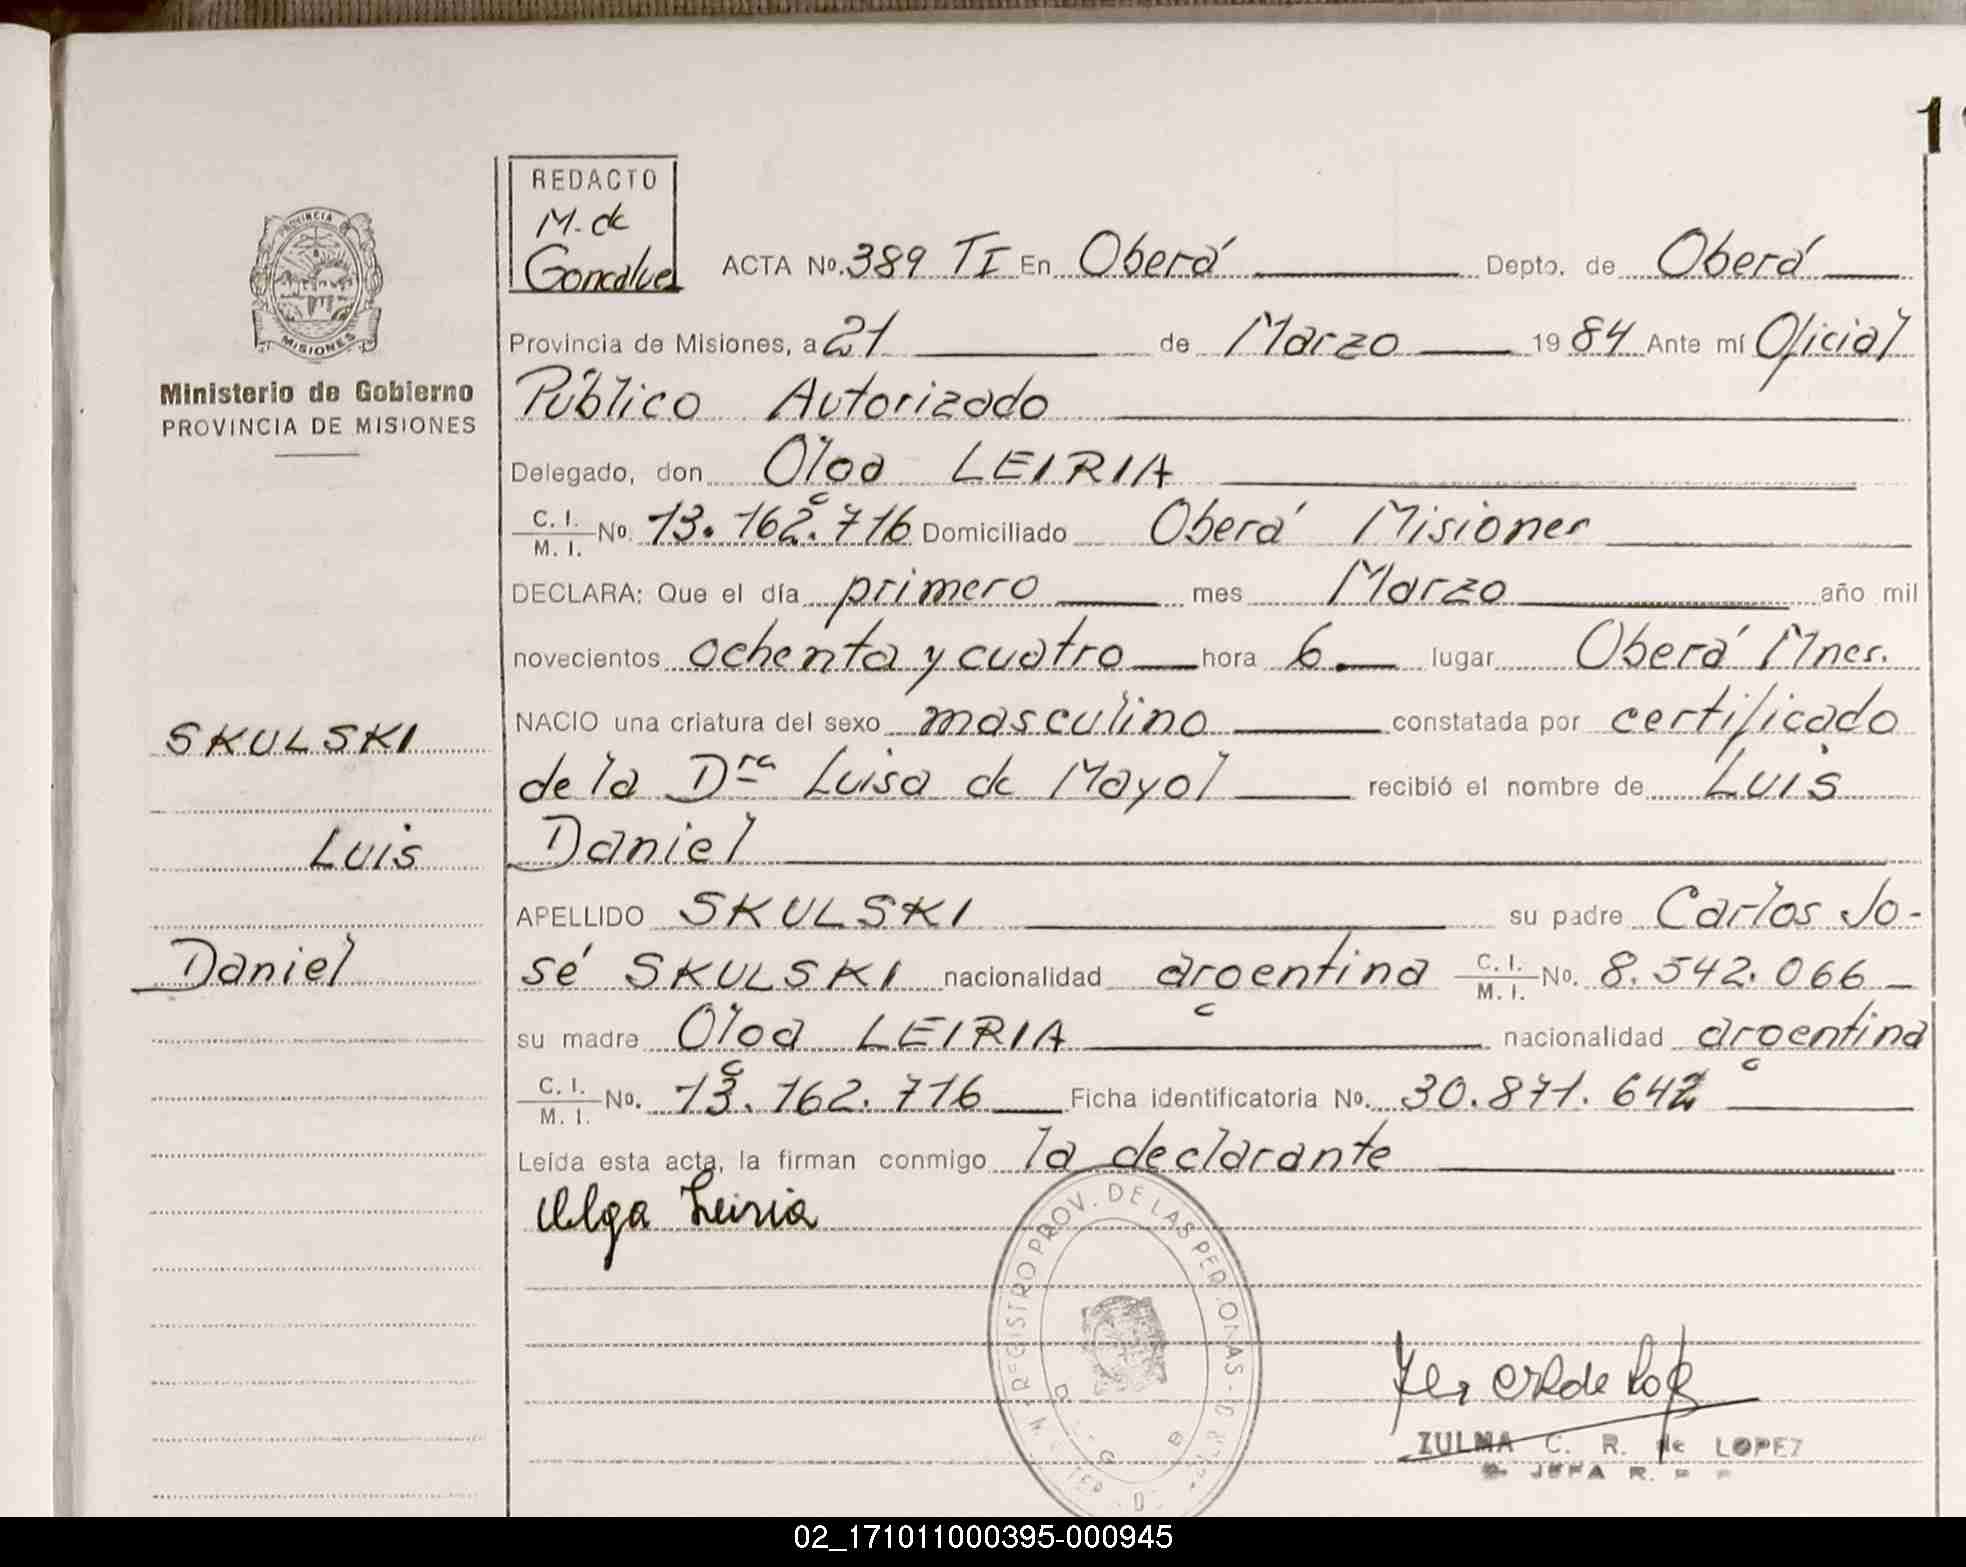 1
REDACTO
M. de
Goncalves
PROVINCIA
MISIONES
Ministerio de Gobierno
PROVINCIA DE MISIONES
ACTA No. 389 TI En Oberá Depto. de Oberá
Provincia de Misiones, a 21 de Marzo 1984 Ante mí Oficial
Público Autorizado
Delegado, don Olga LEIRIA
C. I. / M. I. No. 13.162.716 Domiciliado Oberá Misiones
DECLARA: Que el día primero mes Marzo año mil
novecientos ochenta y cuatro hora 6. lugar Oberá Mnes.
NACIO una criatura del sexo masculino constatada por certificado
de la Dra Luisa de Mayol recibió el nombre de Luis
Daniel
APELLIDO SKULSKI su padre Carlos Jo-
sé SKULSKI nacionalidad argentina C. I. / M. I. No. 8.542.066
su madre Olga LEIRIA nacionalidad argentina
C. I. / M. I. No. 13.162.716 Ficha identificatoria No. 30.871.642
Leída esta acta, la firman conmigo la declarante
Olga Leiria
SKULSKI
Luis
Daniel
REGISTRO PROV. DE LAS PERSONAS
ZULMA C. R. de LOPEZ
JEFA R.
02_171011000395-000945